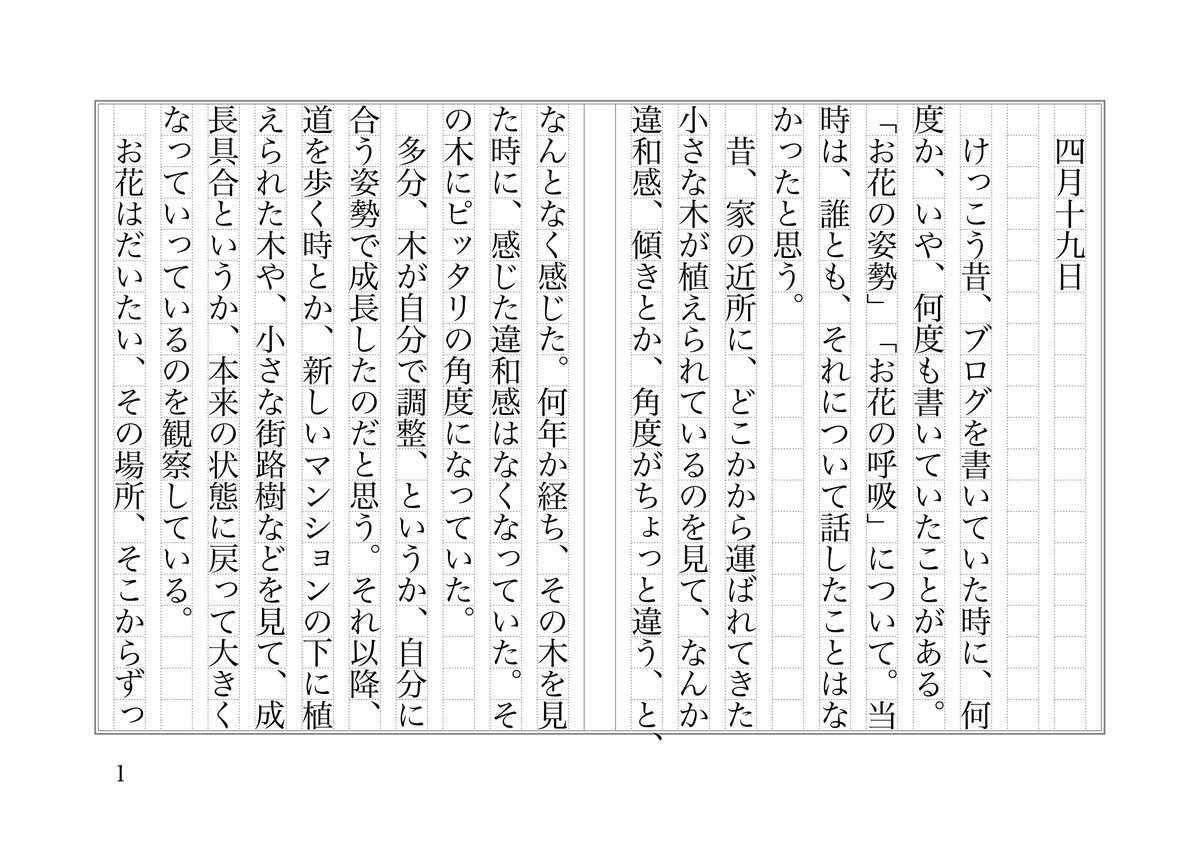 四月十九日
けっこう昔、ブログを書いていた時に、何
度か、いや、何度も書いていたことがある。
「お花の姿勢」「お花の呼吸」について。当
時は、誰とも、それについて話したことはな
かったと思う。
昔、家の近所に、どこかから運ばれてきた
小さな木が植えられているのを見て、なんか
違和感、傾きとか、角度がちょっと違う、と、
なんとなく感じた。何年か経ち、その木を見
た時に、感じた違和感はなくなっていた。そ
の木にピッタリの角度になっていた。
多分、木が自分で調整、というか、自分に
合う姿勢で成長したのだと思う。それ以降、
道を歩く時とか、新しいマンションの下に植
えられた木や、小さな街路樹などを見て、成
長具合というか、本来の状態に戻って大きく
なっていっているのを観察している。
お花はだいたい、その場所、そこからずっ
1